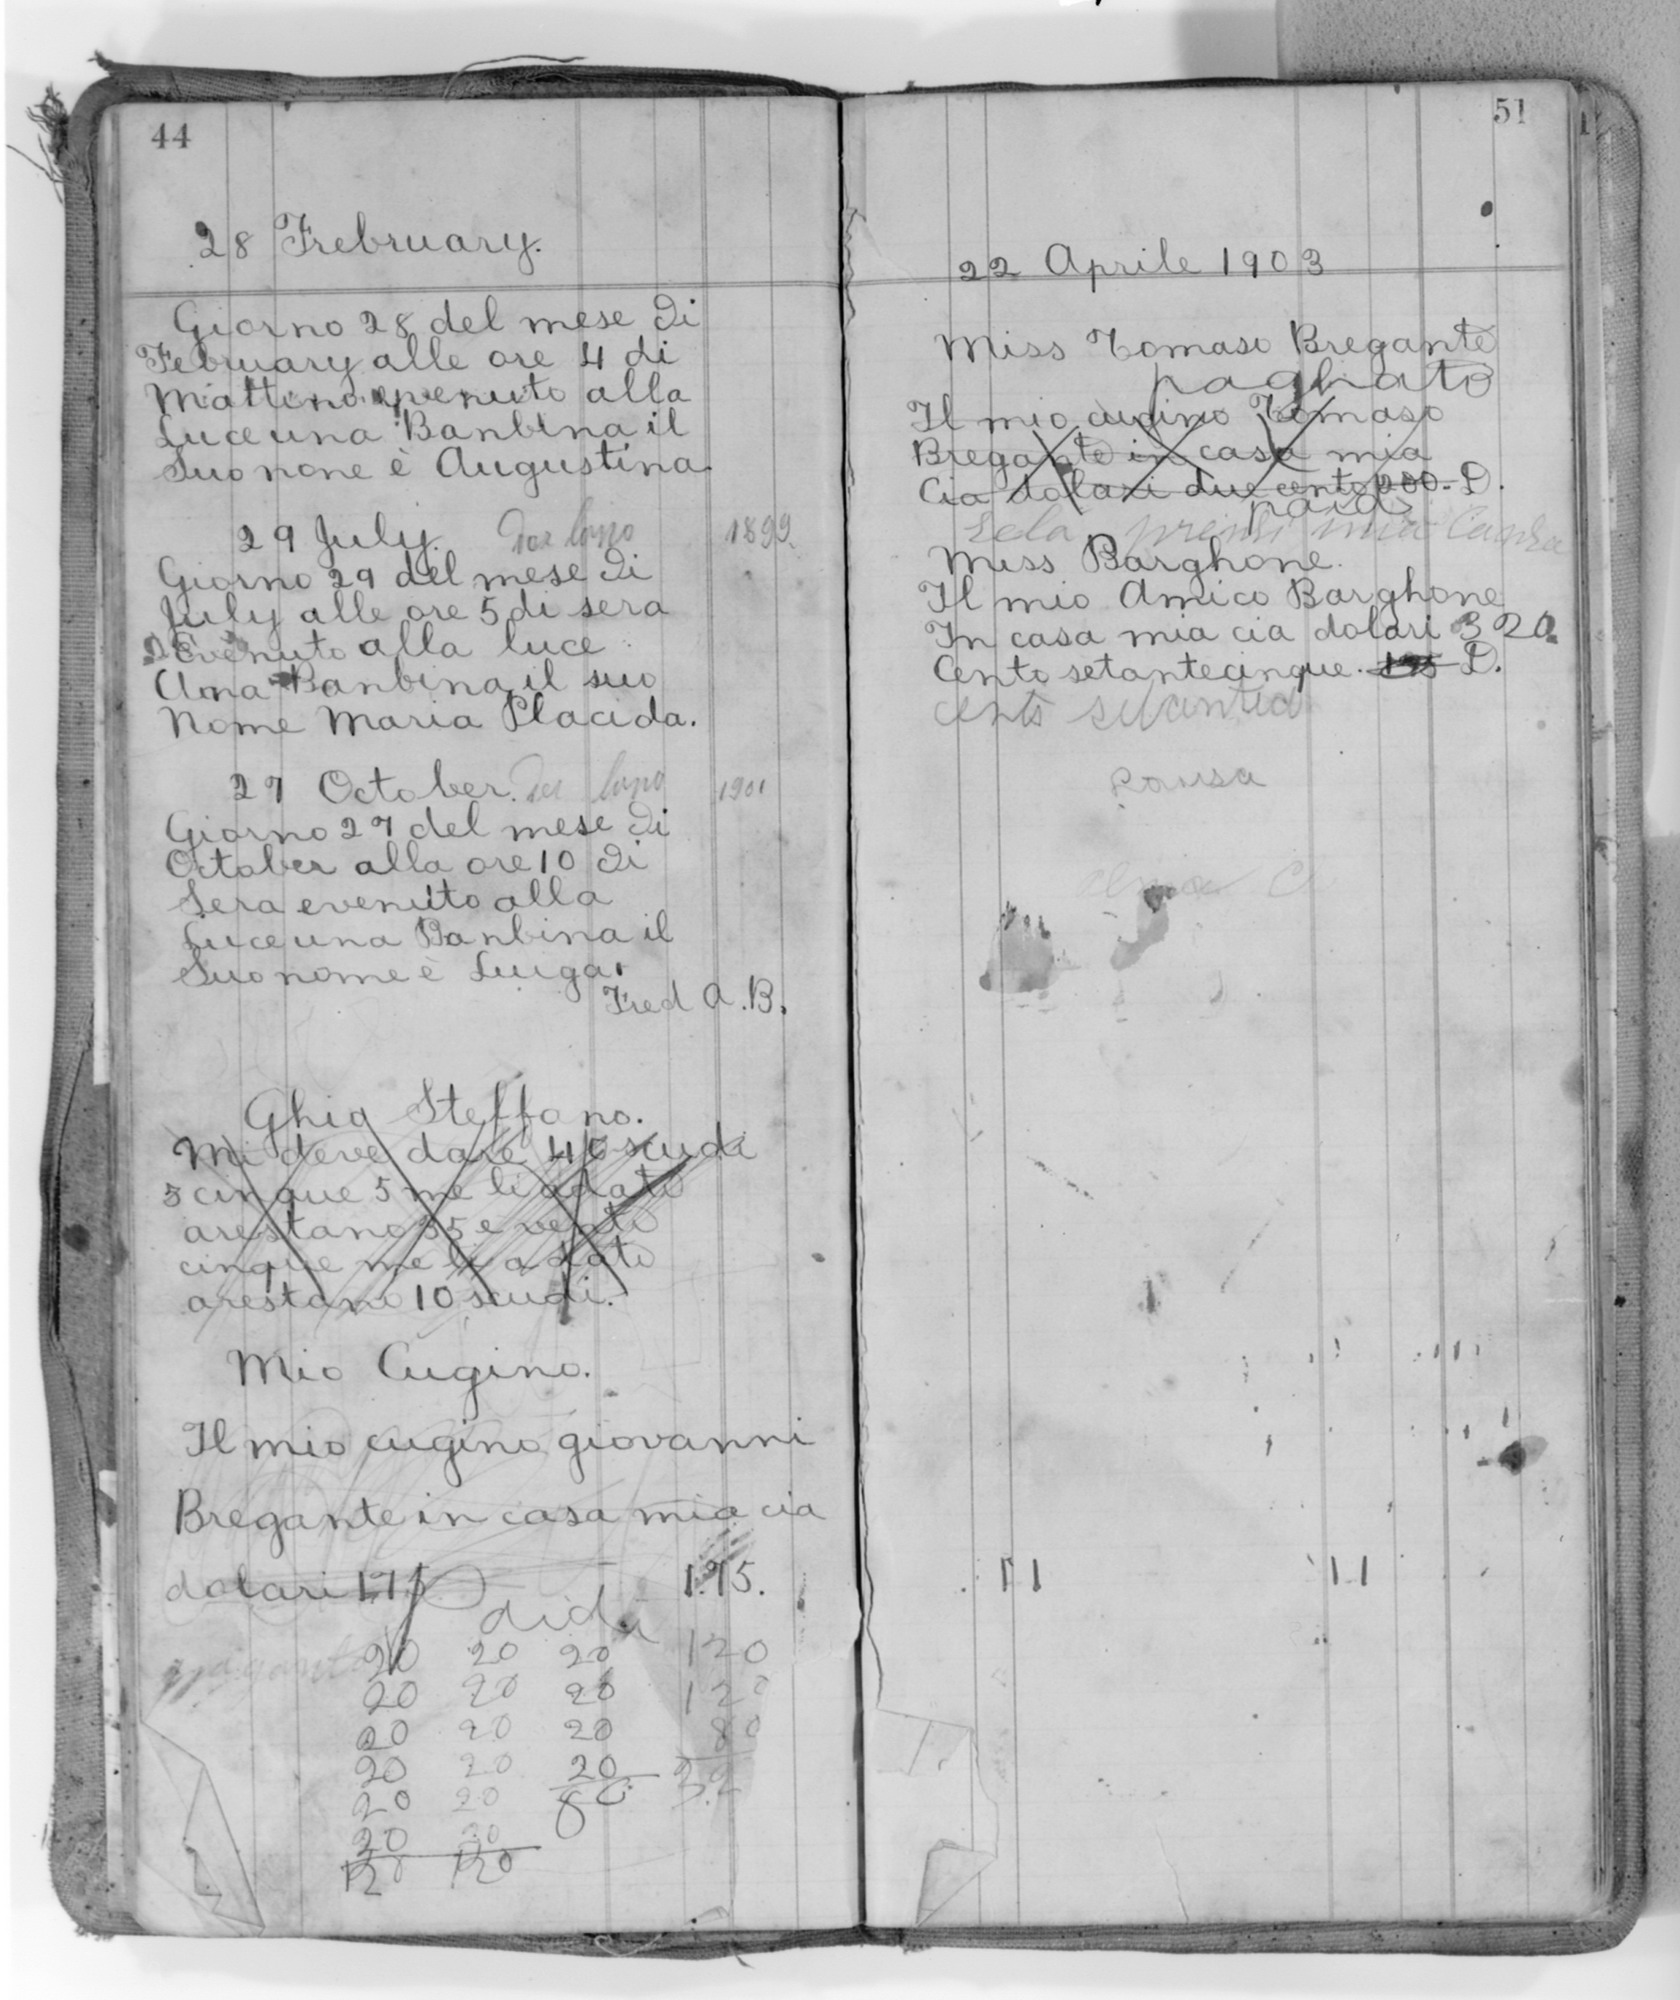 44
28 Frebruary.
Giorno 28 del mese di
February alle ore 4 di
Mattino evenuto alla
Luce una Banbina il
Suo none è Augustina
29 July. 1899.
Giorno 29 del mese di
July alle ore 5 di sera
Evenuto alla luce
Una Banbina il suo
Nome Maria Placida.
27 October. 1901
Giorno 27 del mese di
October alla ore 10 di
Sera evenuto alla
Luce una Banbina il
Suo nome è Luiga.
Fred A. B.
Ghio Steffano.
Mi deve dare 40 scudi
5 cinque 5 me li a dato
arestano 35 e vento
cinque me li a dato
arestano 10 scudi.
Mio Cugino.
Il mio cugino giovanni
Bregante in casa mia cia
dolari 175 1.75.
20 20 20 120
20 20 20 120
20 20 20 80
20 20 20 32
20 20 80
20 20
120 120
51
22 Aprile 1903
Miss Tomaso Bregante
paghato
Il mio cucino Tomaso
Bregante in casa mia
Cia dolari due cento 200. D.
paid
Miss Barghone.
Il mio Amico Barghone
In casa mia cia dolari 320.
Cento setantecinque. 175 D.